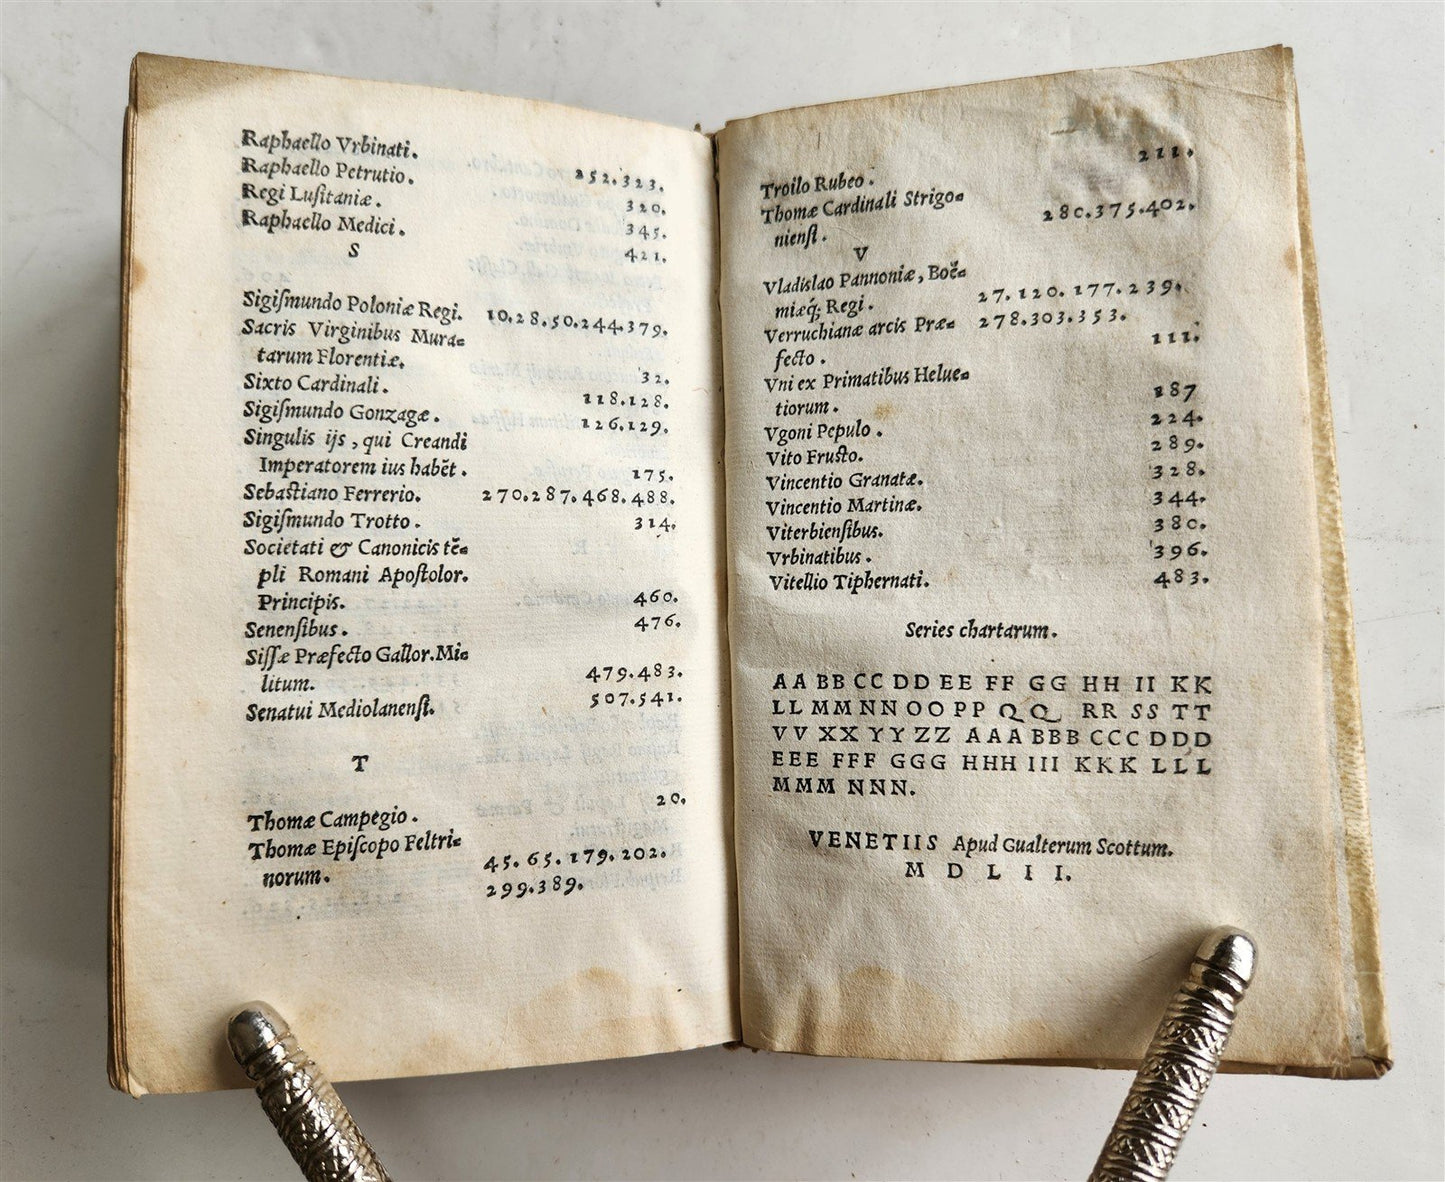 Raphaello Vrbinati.
Raphaello Petrutio. 252.323.
Regi Luſitaniæ. 320.
Raphaello Medici. 345.
S 421.
Sigiſmundo Poloniæ Regi. 10.28.50.244.379.
Sacris Virginibus Mura=
tarum Florentiæ.
Sixto Cardinali. 32.
Sigiſmundo Gonzagæ. 118.128.
Singulis ijs, qui Creandi 126.129.
Imperatorem ius habēt. 175.
Sebaſtiano Ferrerio. 270.287.468.488.
Sigiſmundo Trotto. 314.
Societati & Canonicis tē=
pli Romani Apoſtolor.
Principis. 460.
Senenſibus. 476.
Siſſæ Præfecto Gallor. Mi=
litum. 479.483.
Senatui Mediolanenſi. 507.541.
T
Thomæ Campegio. 20.
Thomæ Epiſcopo Feltri=
norum. 45.65.179.202.
299.389.
Troilo Rubeo. 211.
Thomæ Cardinali Strigo=
nienſi. 280.375.402.
V
Vladislao Pannoniæ, Boē=
miæq́; Regi. 27.120.177.239.
Verruchianæ arcis Præ= 278.303.353.
fecto. 111.
Vni ex Primatibus Helue=
tiorum. 187
Vgoni Pepulo. 224.
Vito Fruſto. 289.
Vincentio Granatæ. 328.
Vincentio Martinæ. 344.
Viterbienſibus. 380.
Vrbinatibus. 396.
Vitellio Tiphernati. 483.
Series chartarum.
AA BB CC DD EE FF GG HH II KK
LL MM NN OO PP QQ RR SS TT
VV XX YY ZZ AAA BBB CCC DDD
EEE FFF GGG HHH III KKK LLL
MMM NNN.
VENETIIS Apud Gualterum Scottum.
M D L I I.